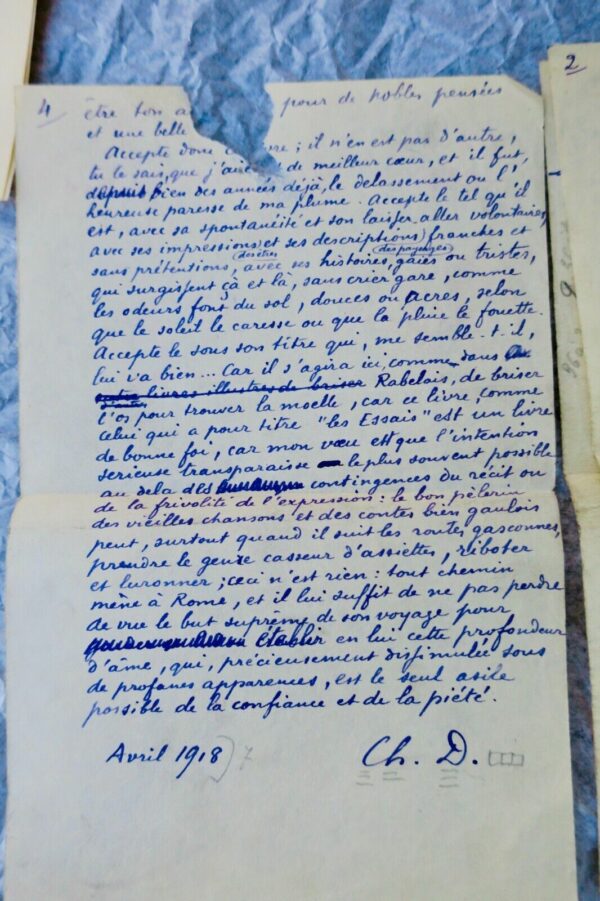 4
2
être ton a pour de nobles pensées
et une belle
Accepte donc re ; il n'en est pas d'autre,
tu le sais, que j'aie de meilleur cœur, et il fut,
depuis bien des années déjà, le délassement ou l'
heureuse paresse de ma plume. Accepte le tel qu'il
est, avec sa spontanéité et son laisser-aller volontaires,
avec ses impressions et ses descriptions franches et
(des êtres (des paysages)
sans prétentions, avec ses histoires, gaies ou tristes,
qui surgissent çà et là, sans crier gare, comme
les odeurs font du sol, douces ou âcres, selon
que le soleil le caresse ou que la pluie le fouette.
Accepte le sous son titre qui, me semble-t-il,
lui va bien... Car il s'agira ici, comme dans
livres illustres de briser Rabelais, de briser
l'os pour trouver la moelle, car ce livre, comme
celui qui a pour titre "les Essais" est un livre
de bonne foi, car mon vœu est que l'intention
sérieuse transparaisse le plus souvent possible
au delà des contingences du récit ou
de la frivolité de l'expression : le bon pèlerin
des vieilles chansons et des contes bien gaulois
peut, surtout quand il suit les routes gasconnes,
prendre le genre casseur d'assiettes, riboter
et luronner ; ceci n'est rien : tout chemin
mène à Rome, et il lui suffit de ne pas perdre
de vue le but suprême de son voyage pour
établir en lui cette profondeur
d'âme, qui, précieusement dissimulée sous
de profanes apparences, est le seul asile
possible de la confiance et de la piété.
Avril 1918
Ch. D.